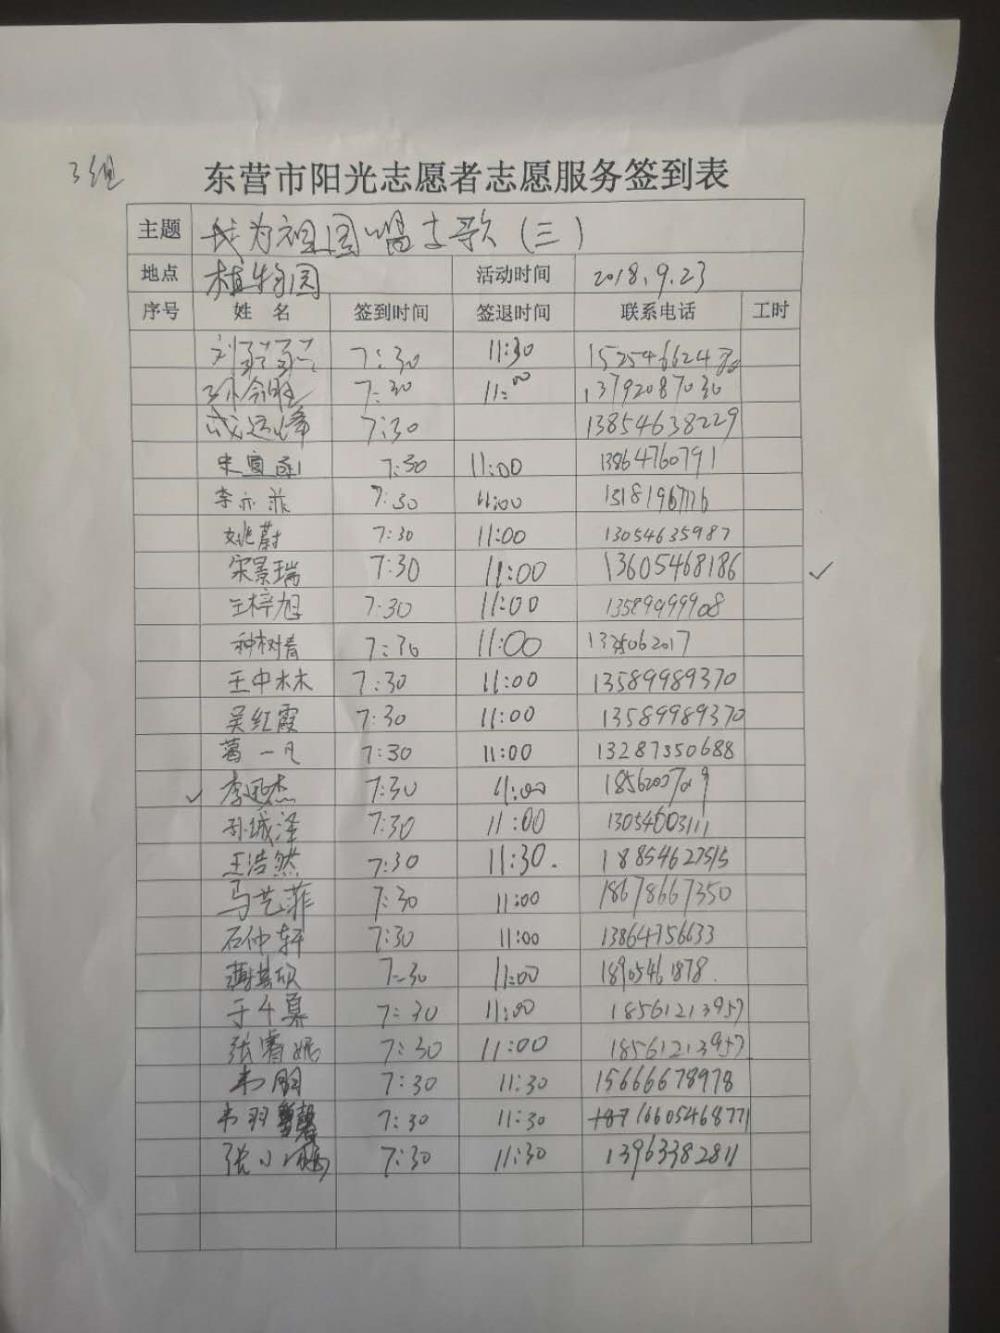 3组
东营市阳光志愿者志愿服务签到表
主题 我为祖国唱支歌（三）
地点 植物园 活动时间 2018.9.23
序号 姓名 签到时间 签退时间 联系电话 工时
刘 7:30 11:30
7:30 11:00 13792087030
7:30 13854638229
7:30 11:00 13864760791
李亦菲 7:30 11:00
姚蔚 7:30 11:00 13054635987
宋景瑞 7:30 11:00 13605468186
王梓旭 7:30 11:00 13589999908
种树青 7:30 11:00
王中林 7:30 11:00 13589989370
吴红霞 7:30 11:00 13589989370
葛一凡 7:30 11:00 13287350688
7:30 11:00
孙诚泽 7:30 11:00 13054603111
王浩然 7:30 11:30. 18854627515
马艺菲 7:30 11:00 18678667350
石仲轩 7:30 11:00 13864756633
7:30 11:00
于 7:30 11:00 18561213957
张睿妮 7:30 11:00 18561213957
韦朋 7:30 11:30 15666678978
韦羽馨 7:30 11:30 16605468771
张小鹏 7:30 11:30 13963382811